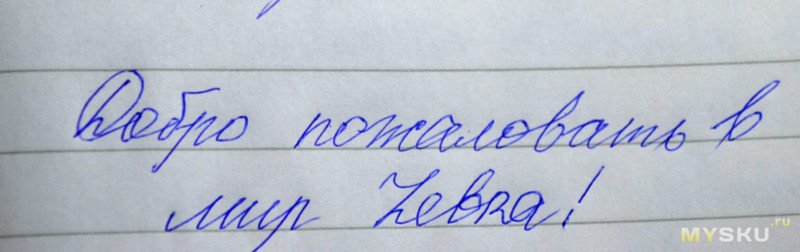 Добро пожаловать в
мир Zевка!
MYSKU.ru